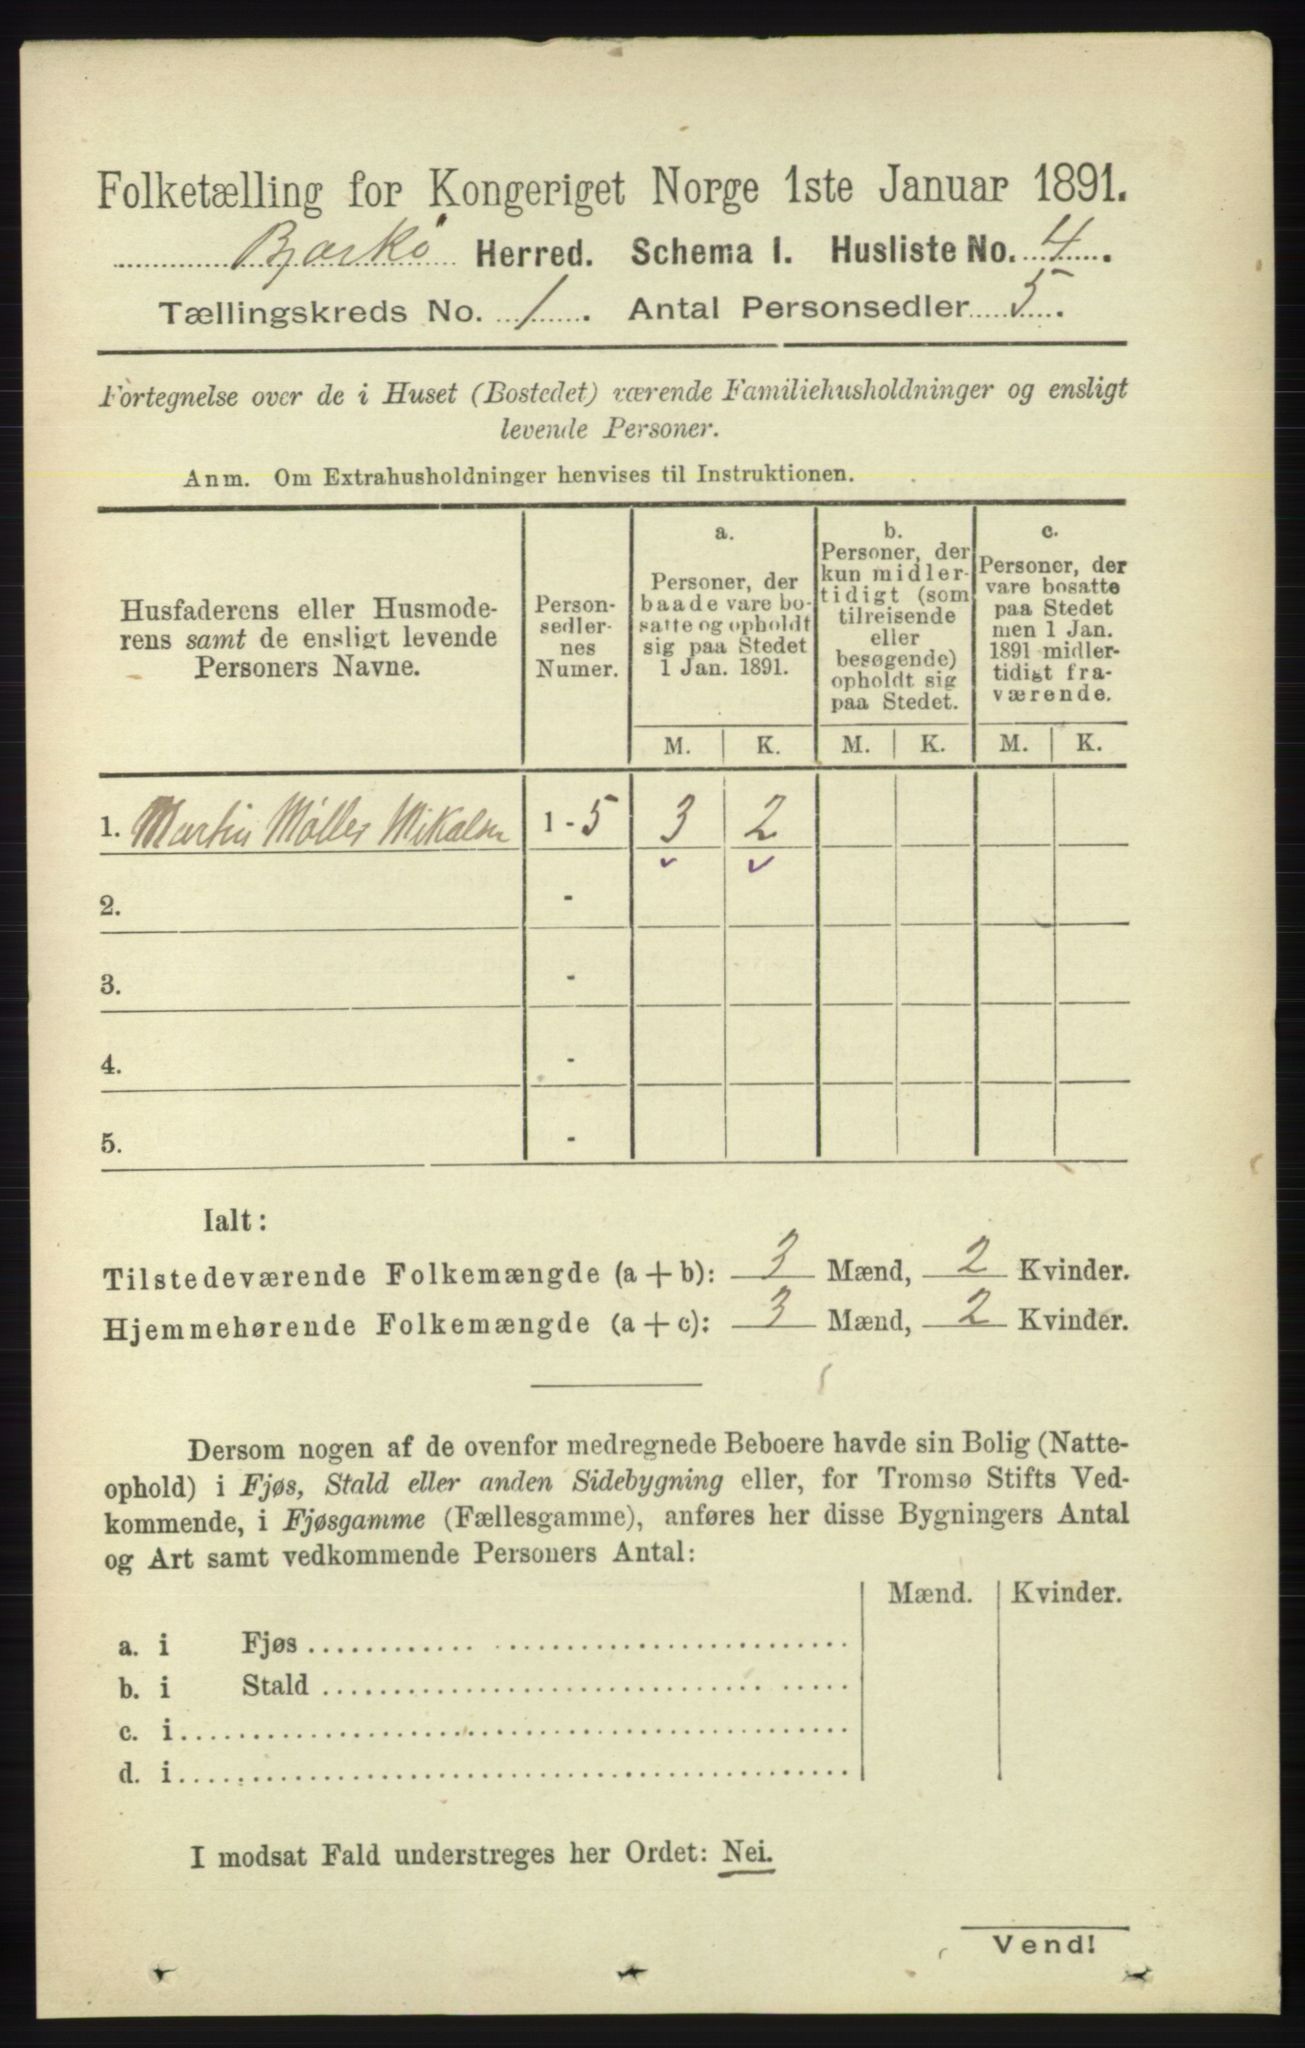 Folketælling for Kongeriget Norge 1ste Januar 1891.
Bjarkø Herred. Schema I. Husliste No. 4.
Tællingskreds No. 1. Antal Personsedler 5.
Fortegnelse over de i Huset (Bostedet) værende Familiehusholdninger og ensligt
levende Personer.
Anm. Om Extrahusholdninger henvises til Instruktionen.
Husfaderens eller Husmode-
rens samt de ensligt levende
Personers Navne.
Person-
sedler-
nes
Numer.
a.
Personer, der
baade vare bo-
satte og opholdt
sig paa Stedet
1 Jan. 1891.
b.
Personer, der
kun midler-
tidigt (som
tilreisende
eller
besøgende)
opholdt sig
paa Stedet.
c.
Personer, der
vare bosatte
paa Stedet
men 1 Jan.
1891 midler-
tidigt fra-
værende.
M. K. M. K. M. K.
1. Martin Møller Mikalsen 1 - 5 3 2
2. -
3. -
4. -
5. -
Ialt:
Tilstedeværende Folkemængde (a + b): 3 Mænd, 2 Kvinder.
Hjemmehørende Folkemængde (a + c): 3 Mænd, 2 Kvinder.
Dersom nogen af de ovenfor medregnede Beboere havde sin Bolig (Natte-
ophold) i Fjøs, Stald eller anden Sidebygning eller, for Tromsø Stifts Ved-
kommende, i Fjøsgamme (Fællesgamme), anføres her disse Bygningers Antal
og Art samt vedkommende Personers Antal:
Mænd. Kvinder.
a. i Fjøs
b. i Stald
c. i
d. i
I modsat Fald understreges her Ordet: Nei.
Vend!